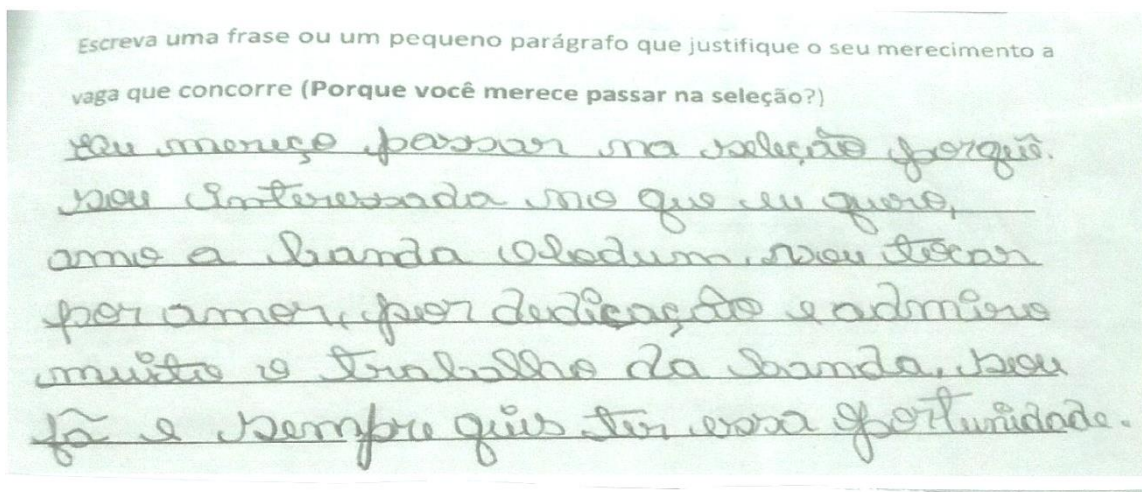 Escreva uma frase ou um pequeno parágrafo que justifique o seu merecimento a
vaga que concorre (Porque você merece passar na seleção?)
Eu mereço passar na seleção porquê.
sou interessada no que eu quero,
amo a banda Olodum, vou tocar
por amor, por dedicação e admiro
muito o trabalho da banda, sou
fã e sempre quis ter essa oportunidade.